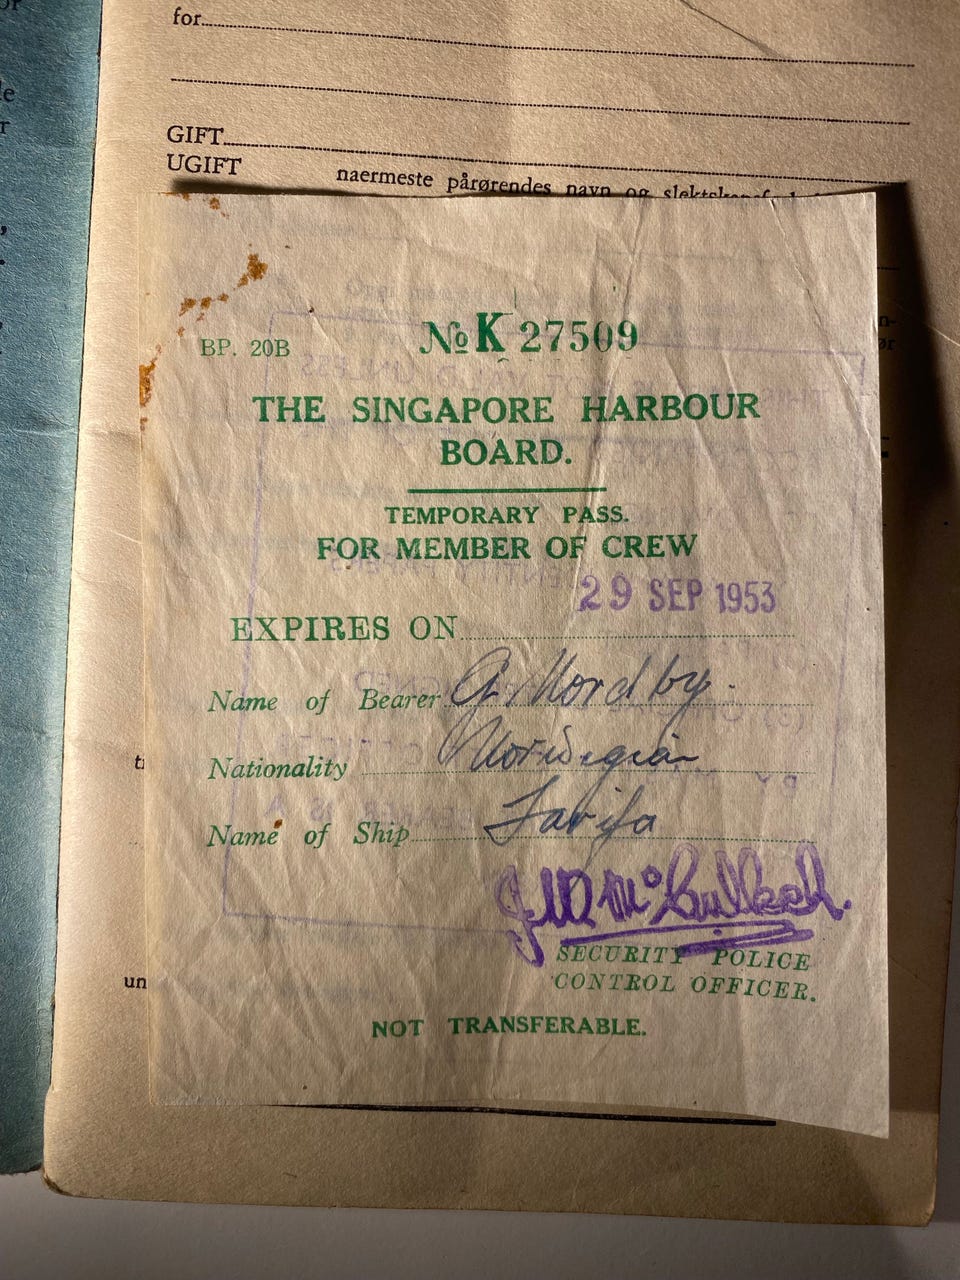 for
GIFT
UGIFT
naermeste pårørendes navn og
BP. 20B
No K 27509
THE SINGAPORE HARBOUR
BOARD.
TEMPORARY PASS.
FOR MEMBER OF CREW
29 SEP 1953
EXPIRES ON
Name of Bearer G. Nordby.
Nationality Norwegian
Name of Ship Tarifa
SECURITY POLICE
CONTROL OFFICER.
NOT TRANSFERABLE.
un